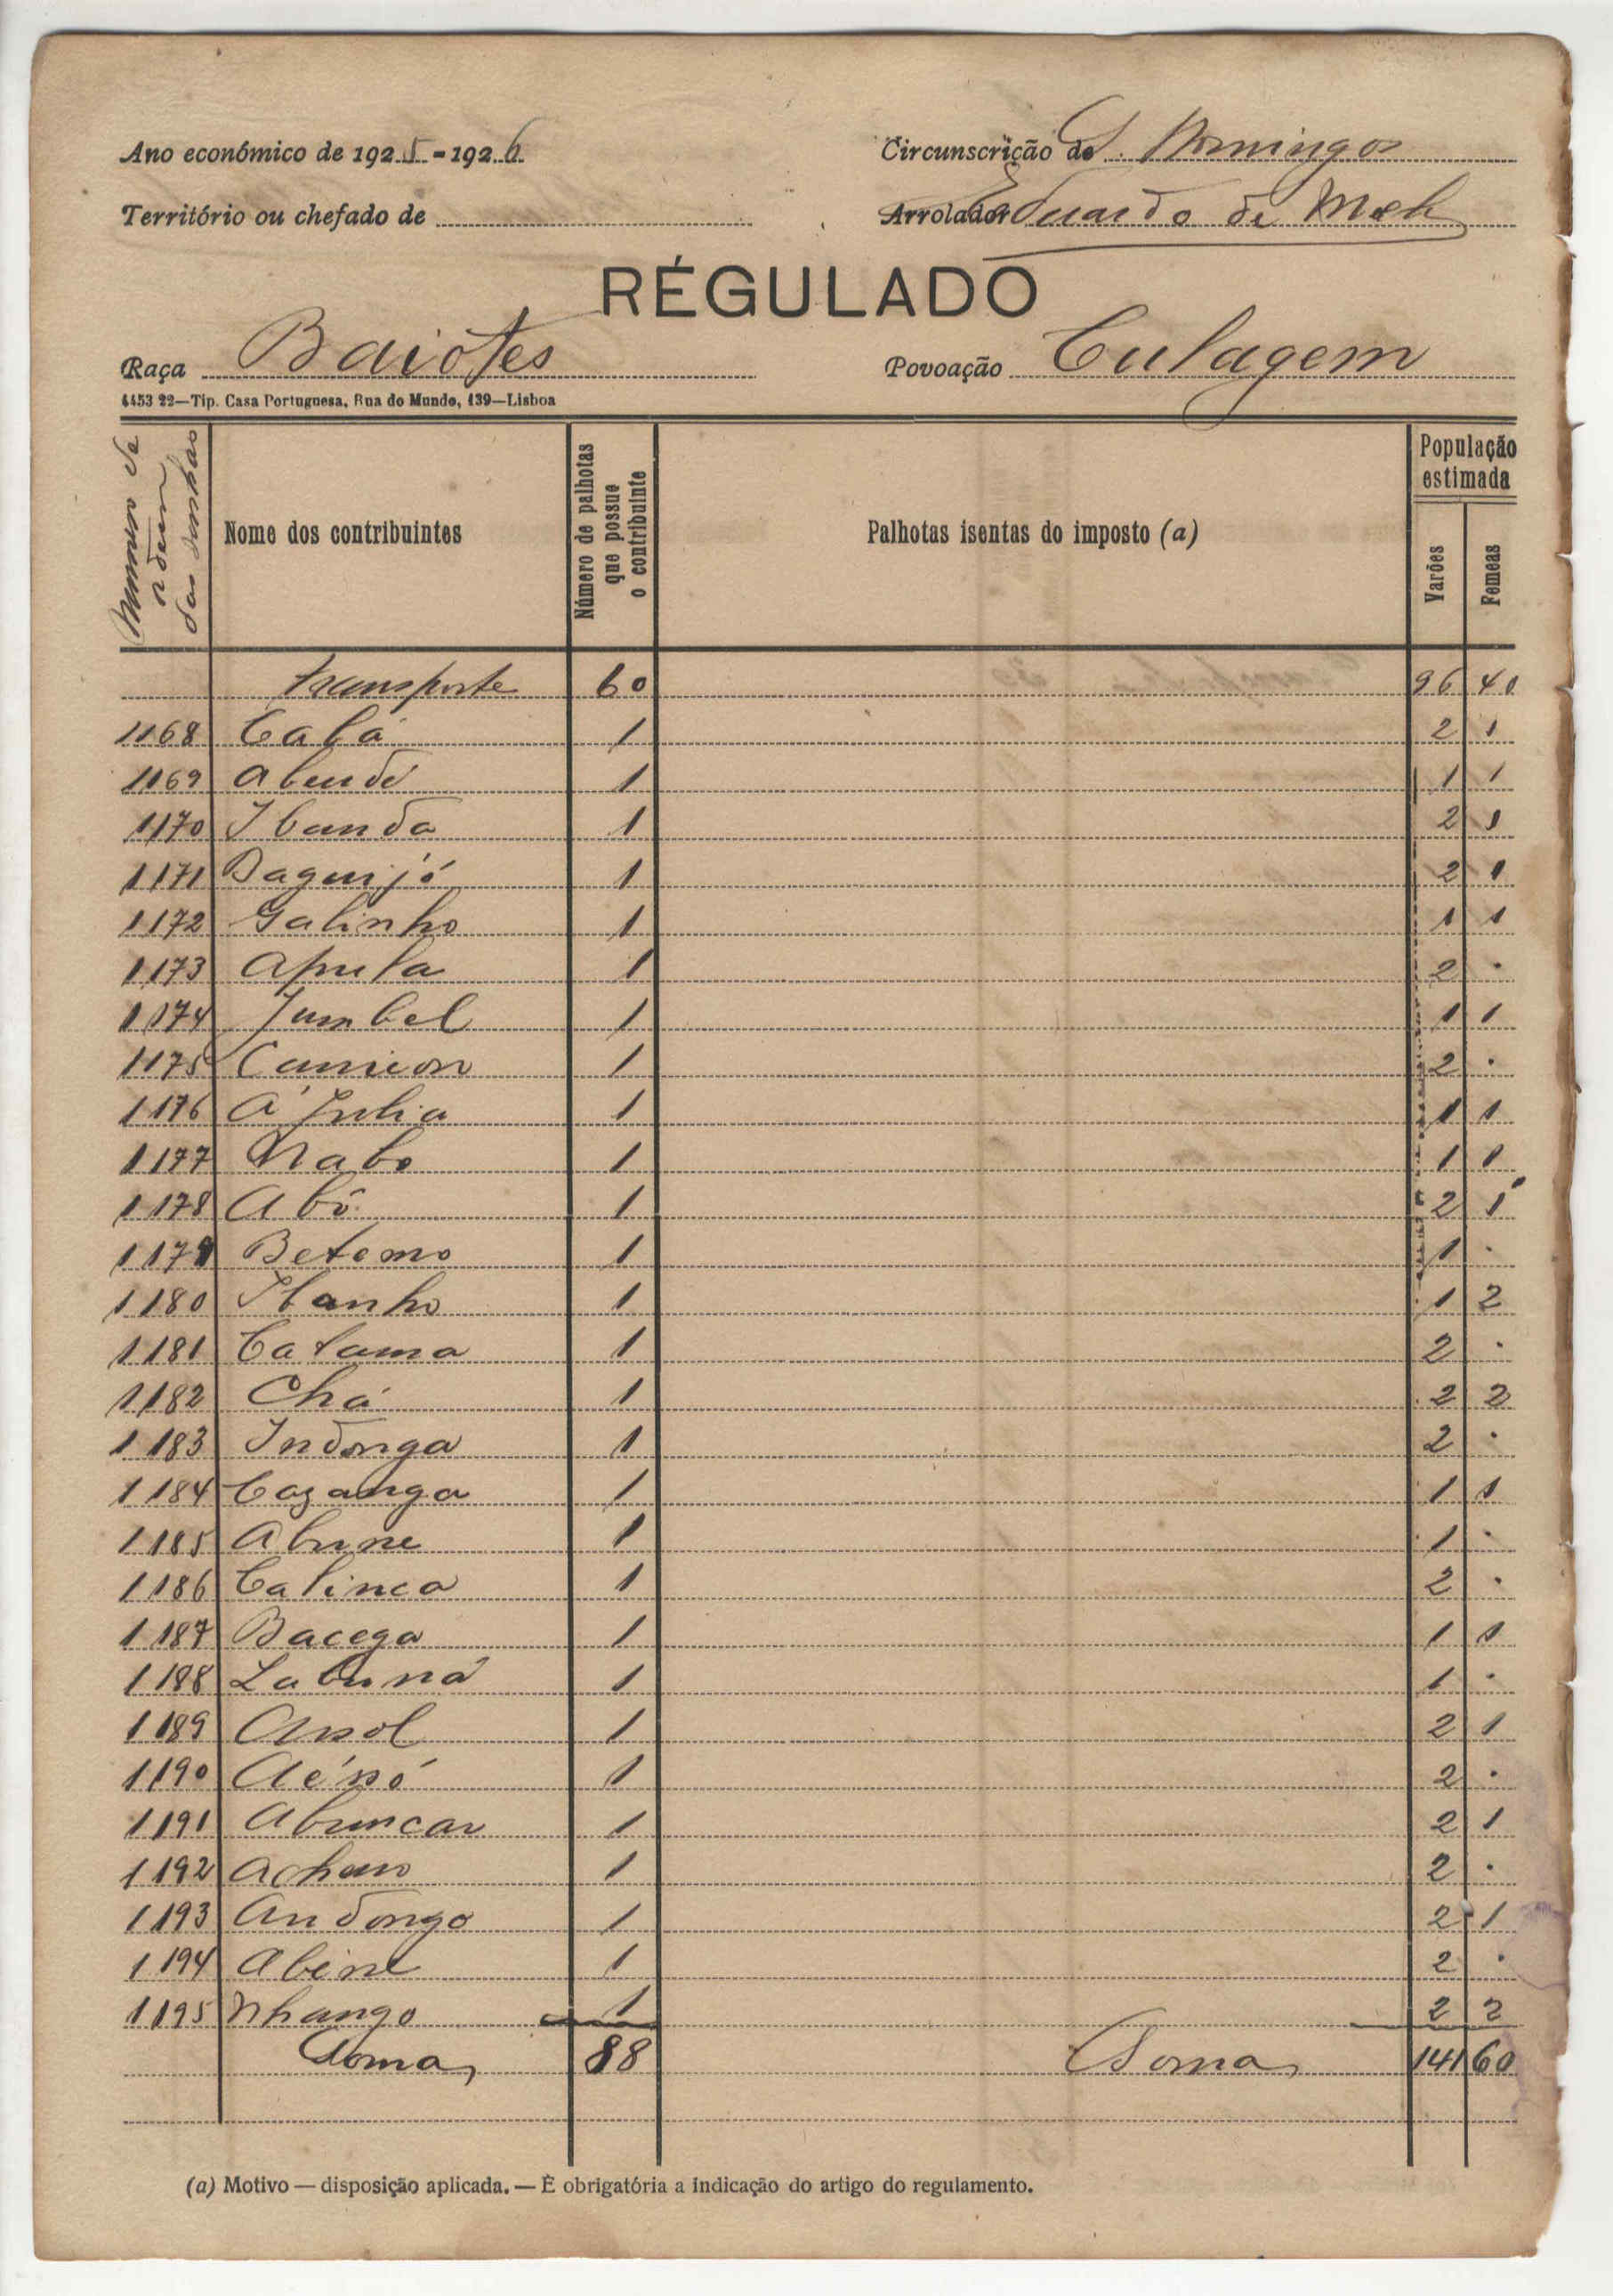 Ano económico de 1925-1926
Circunscrição de S. Domingos
Território ou chefado de
Arrolador Eduardo de
RÉGULADO
Raça Baiótes
Povoação Culagem
4453 22—Tip. Casa Portuguesa, Rua do Mundo, 139—Lisboa
Numero de ordem das senhas
Nome dos contribuintes
Número de palhotas que possue o contribuinte
Palhotas isentas do imposto (a)
População estimada
Varões
Femeas
transporte 60 96 40
1168 Calá 1 2 1
1169 Abudé 1 1 1
1170 Ibanda 1 2 1
1171 Baguijó 1 2 1
1172 Galinho 1 1 1
1173 Apula 1 2 .
1174 Jumbel 1 1 1
1175 1 2 .
1176 A Julia 1 1 1
1177 Nabo 1 1 1
1178 Abó 1 2 1
1179 Betemo 1 1 .
1180 Itanho 1 1 2
1181 Catama 1 2 .
1182 Chá 1 2 2
1183 Indonga 1 2 .
1184 Cazanga 1 1 1
1185 Abune 1 1 .
1186 Calinca 1 2 .
1187 Bacega 1 1 1
1188 Labuná 1 1 .
1189 Ansol 1 2 1
1190 1 2 .
1191 Abuncar 1 2 1
1192 1 2 .
1193 Andongo 1 2 1
1194 Abine 1 2 .
1195 Nhango 1 2 2
Soma 88 Soma 141 60
(a) Motivo — disposição aplicada. — É obrigatória a indicação do artigo do regulamento.